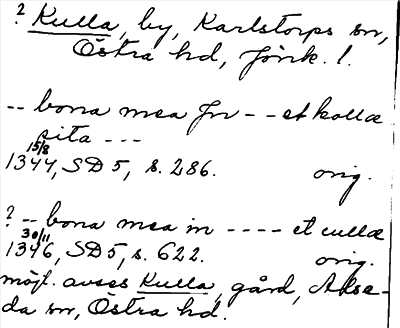 ? Kulla, by, Karlstorps sn,
Östra hd, Jönk. l.
-- bona mea Jn -- et kollæ
sita ---
15/8
1344, SD 5, s. 286. orig.
? -- bona mea in ---- et cullæ
30/11
1346, SD 5, s. 622. orig.
möjl. avses Kulla, gård, Alse-
da sn, Östra hd.